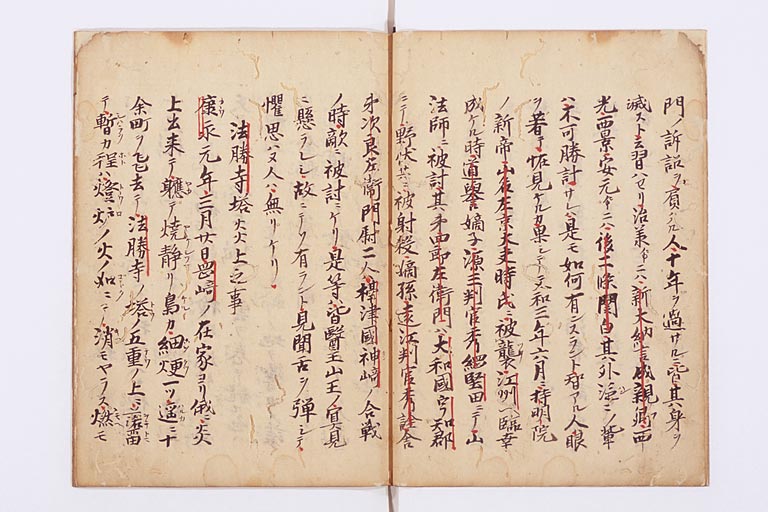 門ノ訴訟ヲ負ハル人十年ヲ過サルニ皆其身ヲ
滅スト云習ハセリ治承ノ年ニハ新大納言成親卿西
光西景安元年ニハ後二条関白其外泛々ノ輩
ハ不可勝計サレハ是モ如何有ンスラント智アル人眼
ヲ着テ怪見ケルカ果シテ文和三年六月ニ持明院
ノ新帝山名左京大夫時氏ニ被襲江州ヘ臨幸
成ケル時道譽嫡子源三判官秀綱堅田ニテ山
法師ニ被討其弟四郎左衛門ハ大和國宇知郡
ニテ野伏共ニ被射殺嫡孫遠江判官秀詮舎
弟次良左衛門尉二人ハ攝津國神崎ノ合戦
ノ時敵ニ被討ケリ是等皆醫王山王ノ冥見
ニ懸ラレシ故ニテソ有ラント見聞舌ヲ弾シテ
懼思ハヌ人ハ無リケリ
法勝寺塔炎上之事
康永元年三月廿日岡崎ノ在家ヨリ俄ニ炎
上出来テ軈テ焼静リ鳥カ細煙一ツ遥ニ十
余町ヲ飛去テ法勝寺ノ塔ノ五重ノ上ニ落留
テ暫カ程ハ燈炉ノ火ノ如ニテ消モヤラス燃モ